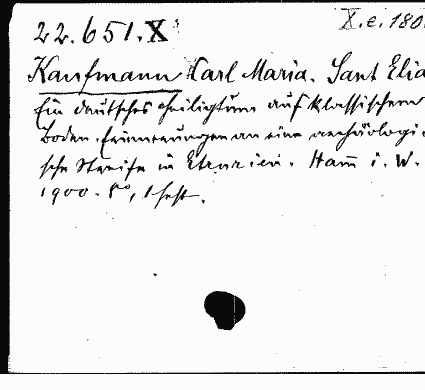 22.651.X X.e.180
Kaufmann Karl Maria. Sant Elia
Ein deutsches Heiligtum auf klassischem
Boden. Erinnerungen an eine archäologi
sche Streife in Etrurien. Ham̅ i. W.
1900. 8°, 1 Heft.